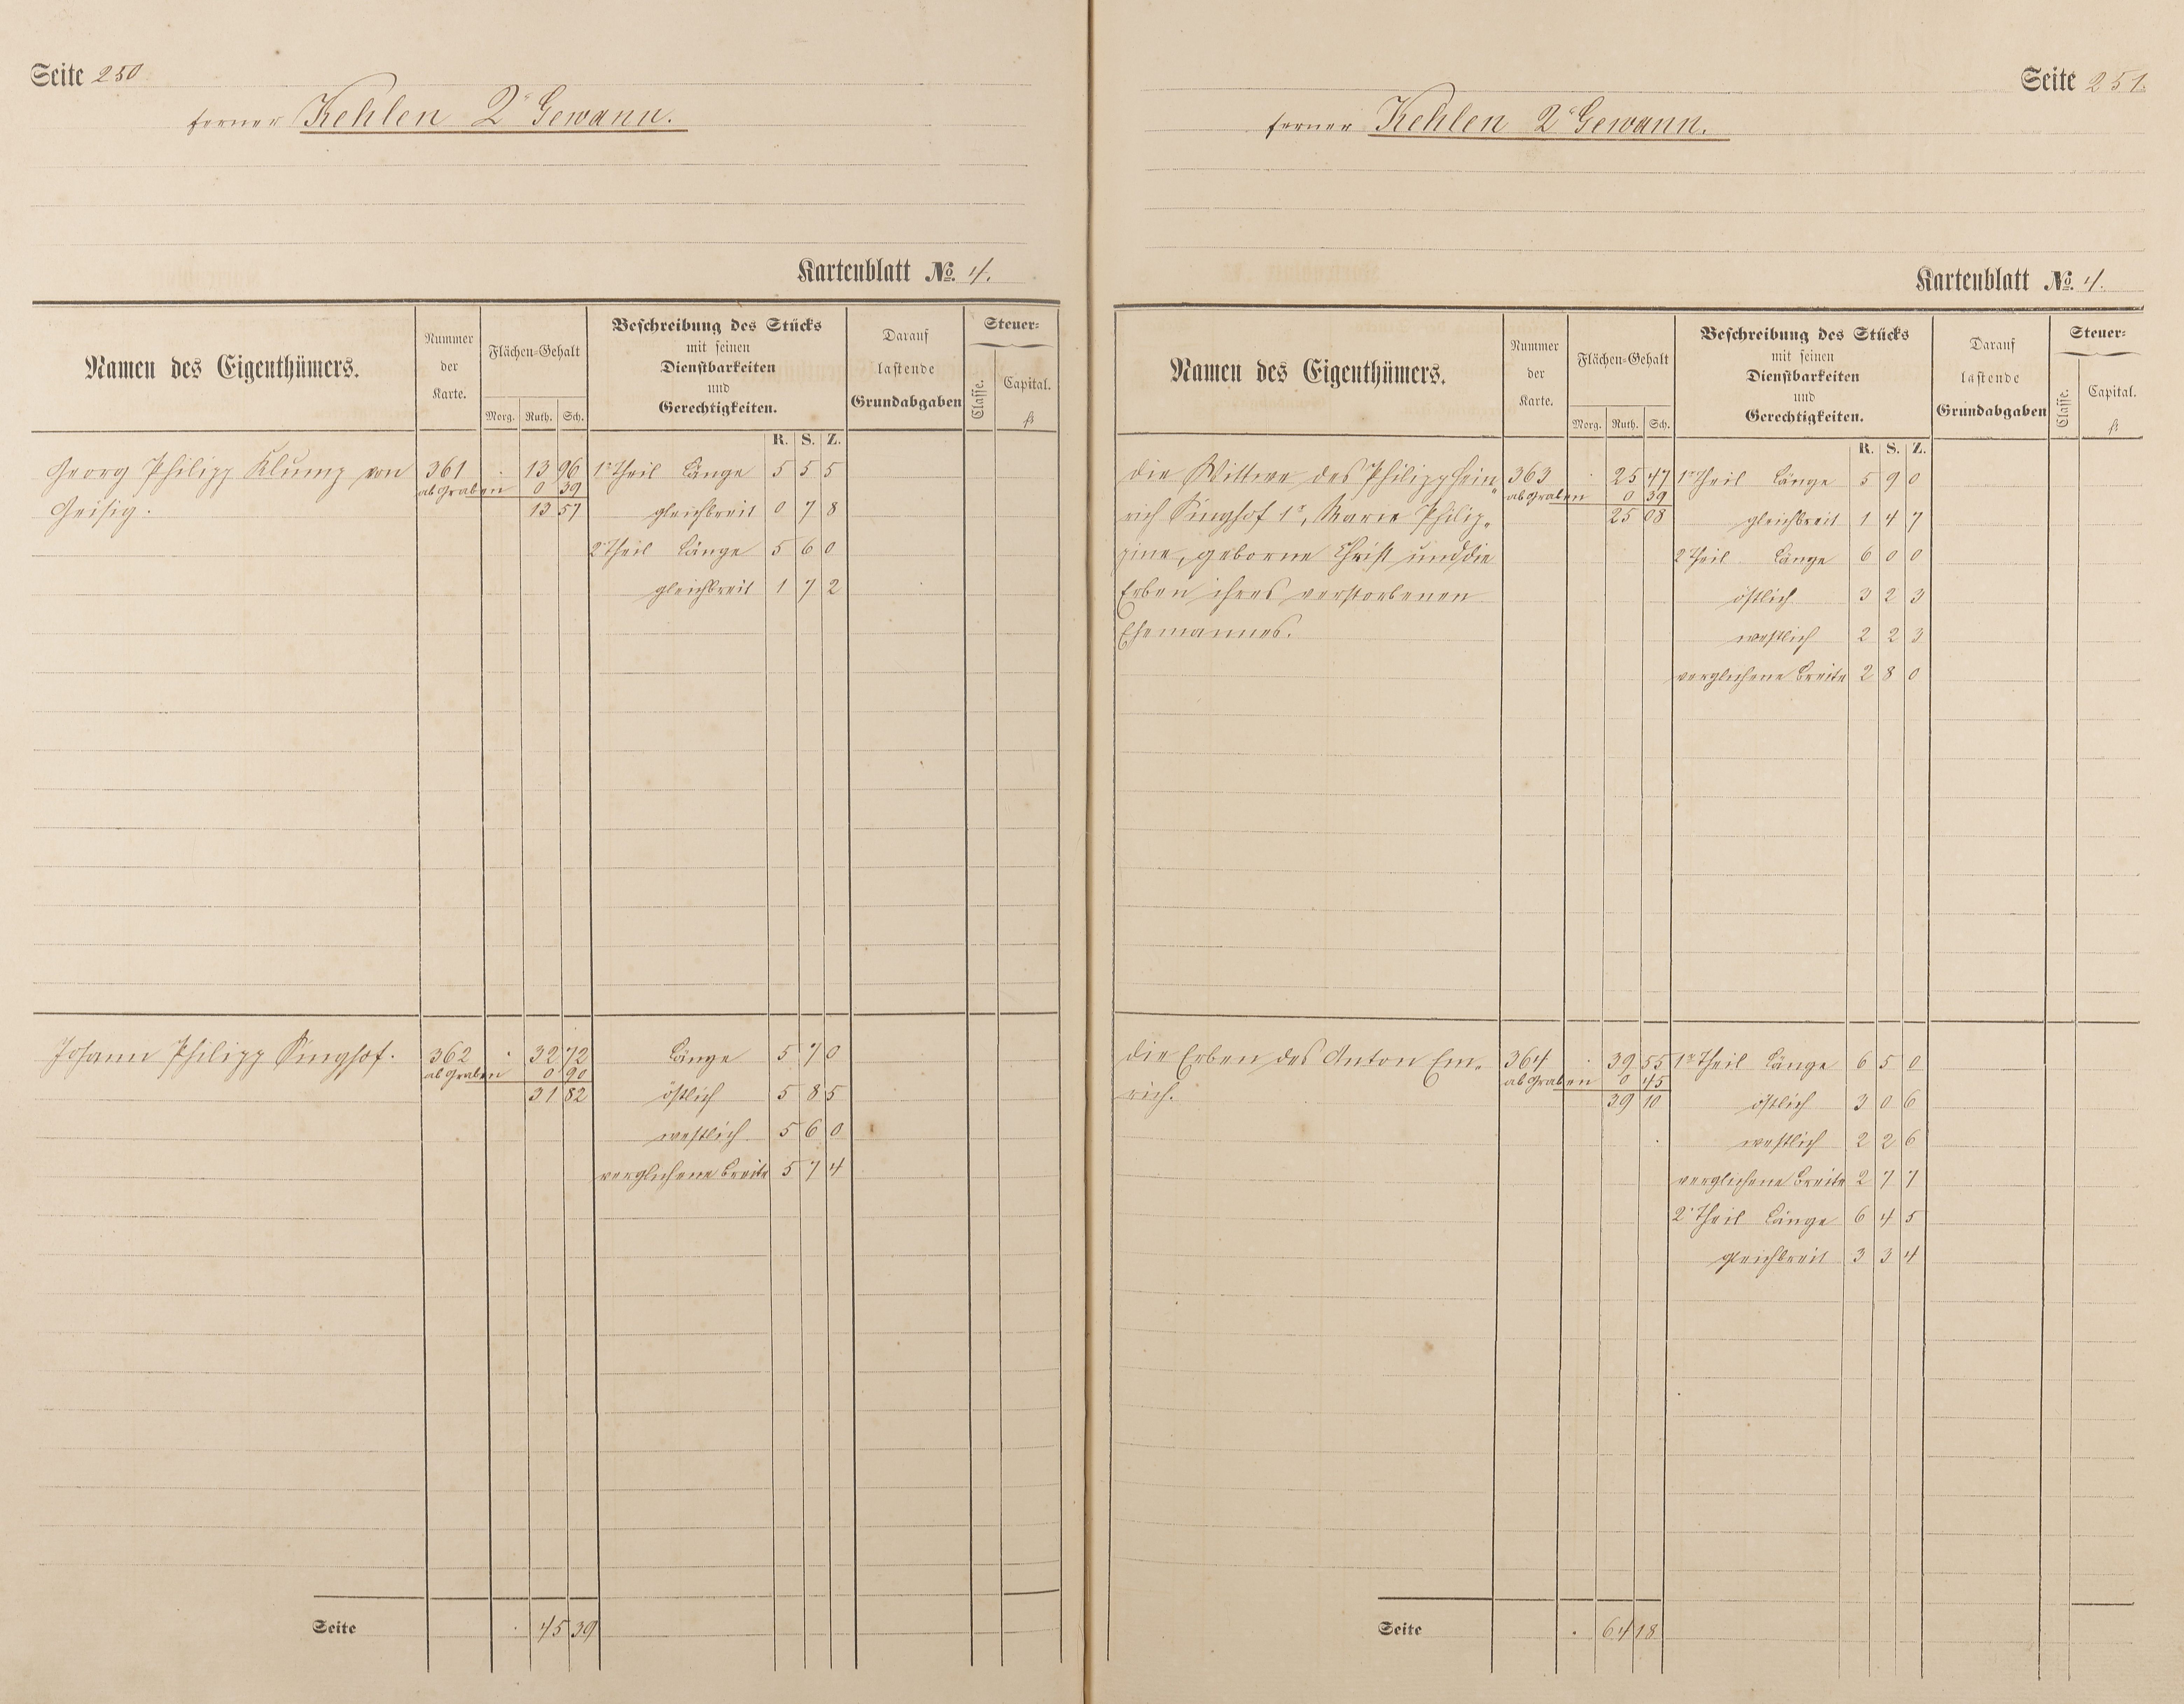 Seite 250
ferner Kehlen 2r Gewann.
Kartenblatt No. 4.
Namen des Eigenthümers.
Nummer der Karte.
Flächen-Gehalt
Morg. Ruth. Sch.
Beschreibung des Stücks
mit seinen
Dienstbarkeiten
und
Gerechtigkeiten.
Darauf
lastende
Grundabgaben
Steuer-
Classe.
Capital.
fl.
R. S. Z.
Georg Philipp Klump von 361 . 13 96 1r Theil Länge 5 5 5
ab Graben 0 39
Geisig. 13 57 gleichbreit 0 7 8
2r Theil Länge 5 6 0
gleichbreit 1 7 2
Johann Philipp Singhof. 362 . 32 72 Länge 5 7 0
ab Graben 0 90
31 82 östlich 5 8 5
westlich 5 6 0
verglichene Breite 5 7 4
Seite . 45 39
Seite 251.
ferner Kehlen 2r Gewann.
Kartenblatt No. 4.
Namen des Eigenthümers.
Nummer der Karte.
Flächen-Gehalt
Morg. Ruth. Sch.
Beschreibung des Stücks
mit seinen
Dienstbarkeiten
und
Gerechtigkeiten.
Darauf
lastende
Grundabgaben
Steuer-
Classe.
Capital.
fl.
R. S. Z.
Die Wittwe des Philipp Hein- 363 . 25 47 1r Theil Länge 5 9 0
ab Graben 0 39
rich Singhof 1r, Marie Philip- 25 08 gleichbreit 1 4 7
pine, geborne Christ und die 2r Theil Länge 6 0 0
Erben ihres verstorbenen östlich 3 2 3
Ehemannes. westlich 2 2 3
verglichene Breite 2 8 0
Die Erben des Anton Em- 364 . 39 55 1r Theil Länge 6 5 0
ab Graben 0 45
rich. 39 10 östlich 3 0 6
westlich 2 2 6
verglichene Breite 2 7 7
2r Theil Länge 6 4 5
gleichbreit 3 3 4
Seite . 64 18